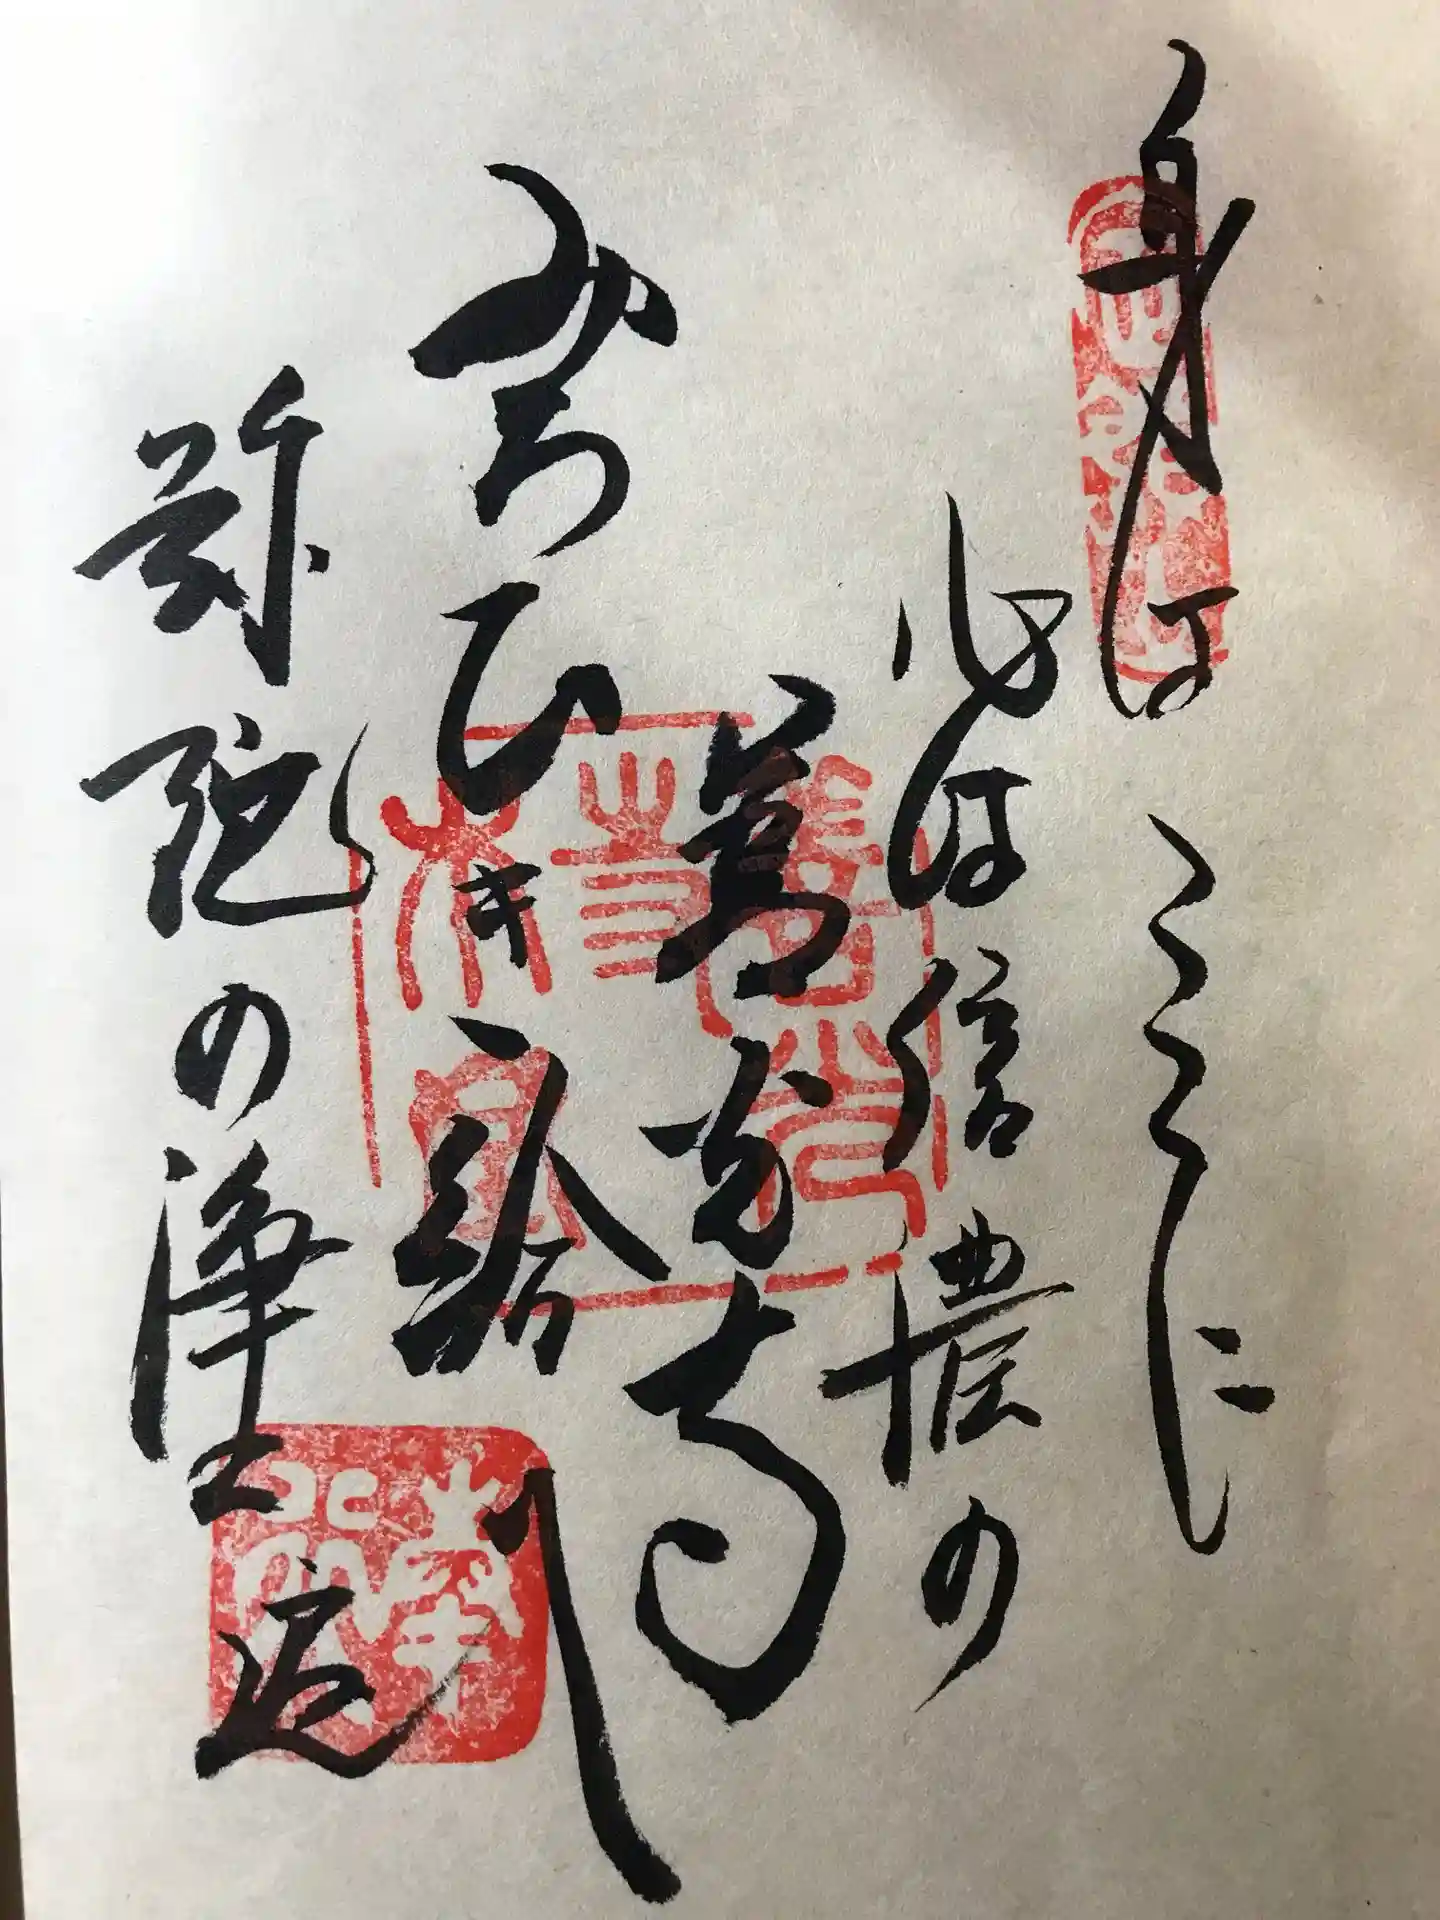 身はここに
心は信濃の
善光寺
みちひき給へ
弥陀の浄土遍